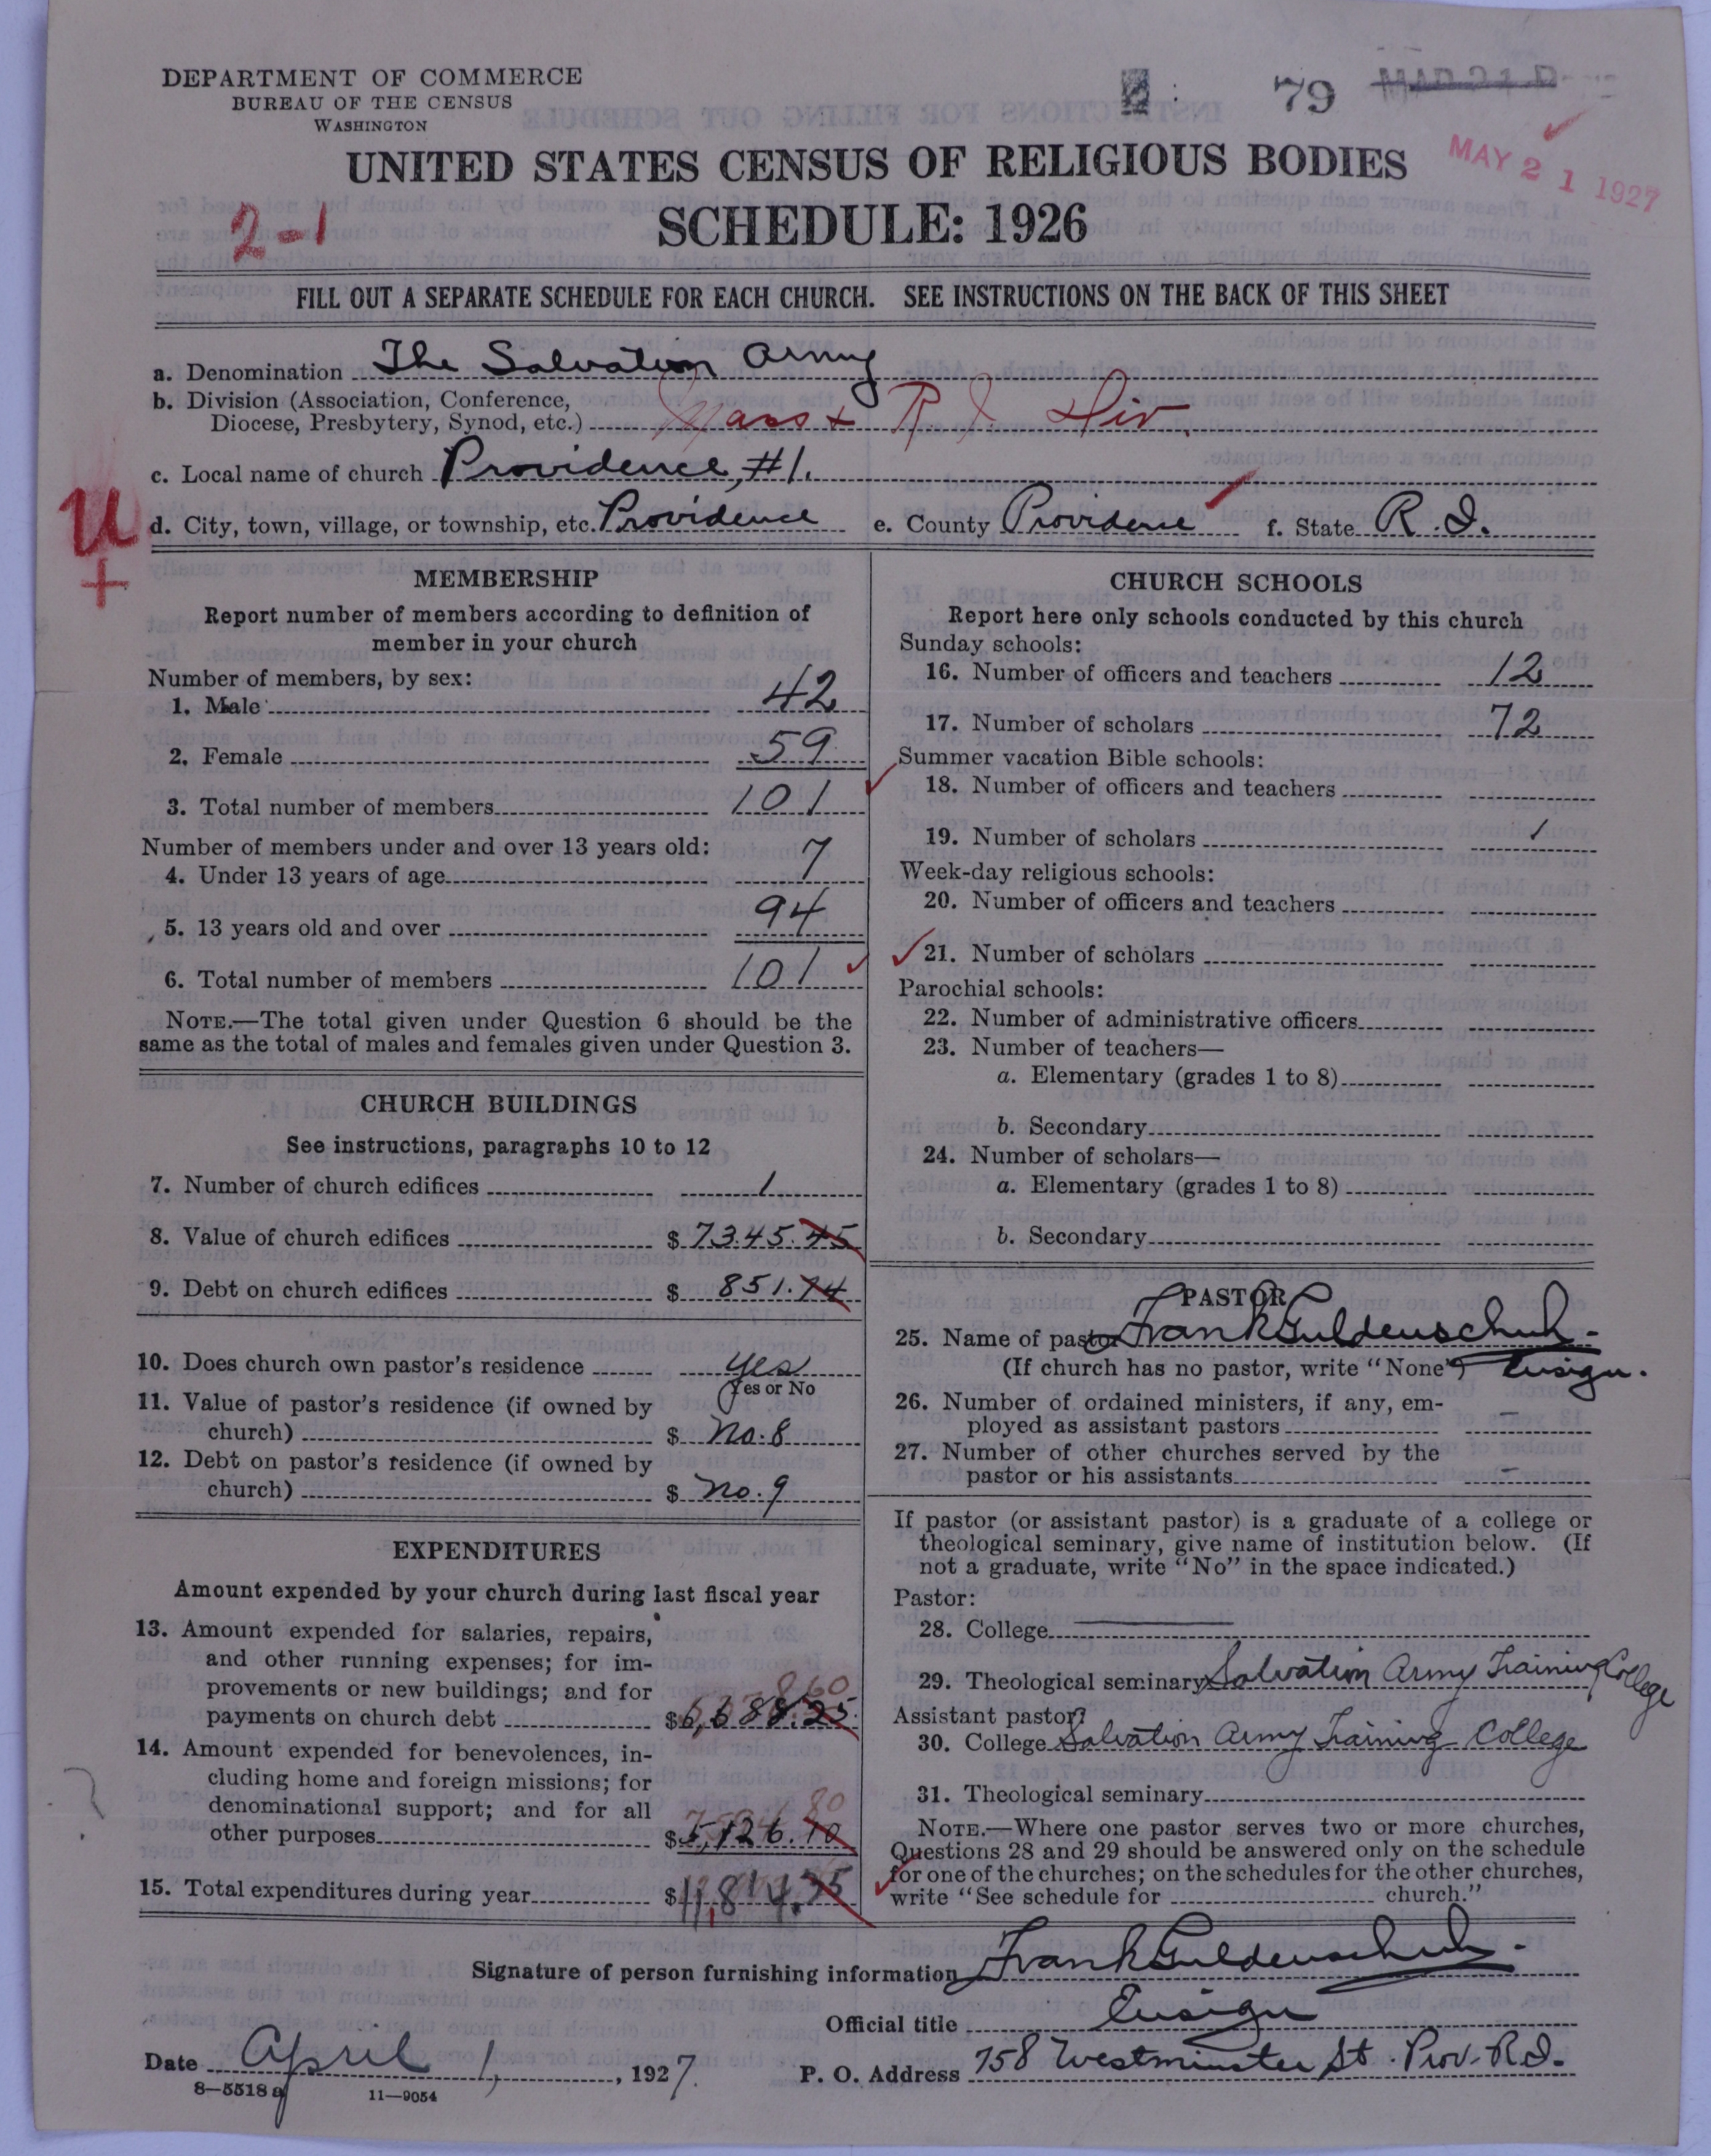 DEPARTMENT OF COMMERCE
BUREAU OF THE CENSUS
WASHINGTON
79
MAY 21 1927
UNITED STATES CENSUS OF RELIGIOUS BODIES
2-1
SCHEDULE: 1926
FILL OUT A SEPARATE SCHEDULE FOR EACH CHURCH. SEE INSTRUCTIONS ON THE BACK OF THIS SHEET
a. Denomination The Salvation Army
b. Division (Association, Conference,
Diocese, Presbytery, Synod, etc.) Mass + R I. Div.
c. Local name of church Providence, #1.
U
+
d. City, town, village, or township, etc. Providence e. County Providence f. State R.I.
MEMBERSHIP
Report number of members according to definition of
member in your church
Number of members, by sex:
1. Male 42
2. Female 59
3. Total number of members 101
Number of members under and over 13 years old:
4. Under 13 years of age 7
5. 13 years old and over 94
6. Total number of members 101
NOTE.—The total given under Question 6 should be the
same as the total of males and females given under Question 3.
CHURCH BUILDINGS
See instructions, paragraphs 10 to 12
7. Number of church edifices 1
8. Value of church edifices $ 7345.45
9. Debt on church edifices $ 851.74
10. Does church own pastor's residence yes
Yes or No
11. Value of pastor's residence (if owned by
church) $ No. 8
12. Debt on pastor's residence (if owned by
church) $ No. 9
EXPENDITURES
Amount expended by your church during last fiscal year
13. Amount expended for salaries, repairs,
and other running expenses; for im-
provements or new buildings; and for
payments on church debt $ 6,688.25
14. Amount expended for benevolences, in-
cluding home and foreign missions; for
denominational support; and for all
other purposes $ 5,126.10
15. Total expenditures during year $ 11,814.35
CHURCH SCHOOLS
Report here only schools conducted by this church
Sunday schools:
16. Number of officers and teachers 12
17. Number of scholars 72
Summer vacation Bible schools:
18. Number of officers and teachers
19. Number of scholars
Week-day religious schools:
20. Number of officers and teachers
21. Number of scholars
Parochial schools:
22. Number of administrative officers
23. Number of teachers—
a. Elementary (grades 1 to 8)
b. Secondary
24. Number of scholars—
a. Elementary (grades 1 to 8)
b. Secondary
PASTOR
25. Name of pastor Frank Guldenschuh.
(If church has no pastor, write "None") Ensign.
26. Number of ordained ministers, if any, em-
ployed as assistant pastors —
27. Number of other churches served by the
pastor or his assistants —
If pastor (or assistant pastor) is a graduate of a college or
theological seminary, give name of institution below. (If
not a graduate, write "No" in the space indicated.)
Pastor:
28. College
29. Theological seminary Salvation Army Training College
Assistant pastor:
30. College Salvation Army Training College
31. Theological seminary
NOTE.—Where one pastor serves two or more churches,
Questions 28 and 29 should be answered only on the schedule
for one of the churches; on the schedules for the other churches,
write "See schedule for church."
Signature of person furnishing information Frank Guldenschuh.
Official title Ensign
Date April 1, 1927. P. O. Address 758 Westminster St. Prov. R.I.
8-5518 a 11-9054